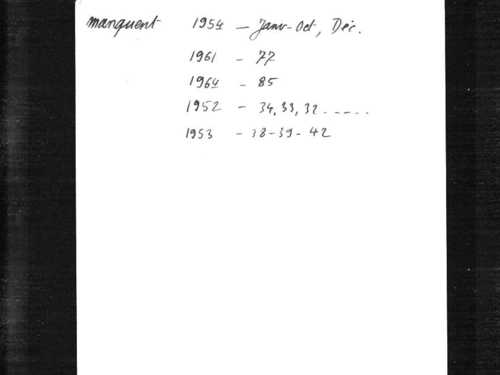 manquent 1954 — Janv-Oct, Déc.
1961 - 77
1964 - 85
1952 - 34, 33, 32 -----
1953 - 38-39-42